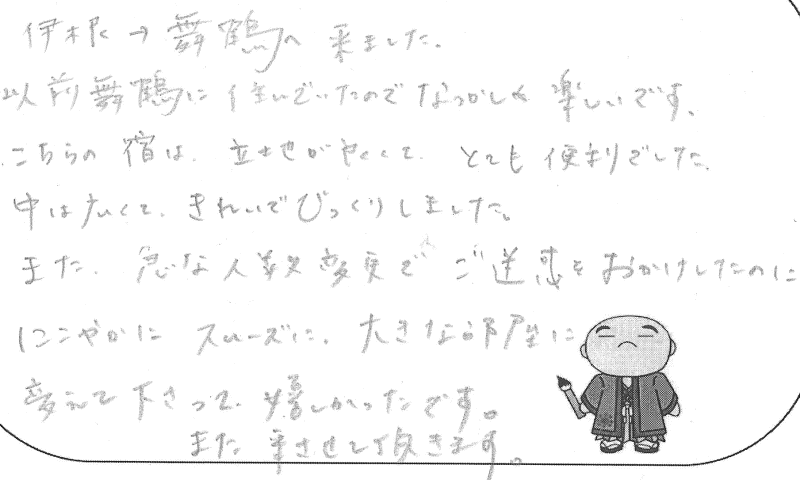 伊根→舞鶴へ 来ました。
以前舞鶴に住んでいたのでなつかしく楽しいです。
こちらの宿は、立地が良くて、とても便利でした。
中は広くて、きれいでびっくりしました。
また、急な人数変更でご迷惑をおかけしたのに
にこやかにスムーズに、大きなお部屋に
変えて下さって、嬉しかったです。
また来させて頂きます。